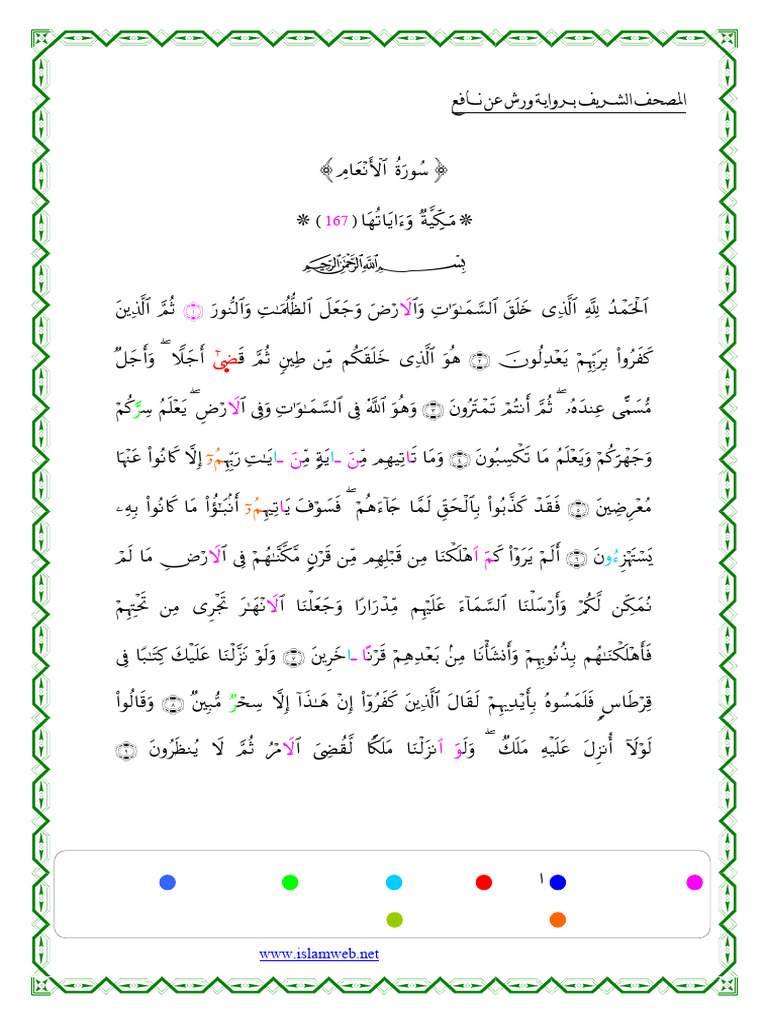 المصحف الشريف برواية ورش عن نافع
﴿ سُورَةُ اُ۬لْأَنْعَامِ ﴾
* مَكِّيَّةٌ وَءَايَاتُهَا ( 167 ) *
بِسْمِ اللَّهِ الرَّحْمَٰنِ الرَّحِيمِ
اَ۬لْحَمْدُ لِلهِ اِ۬لَّذِى خَلَقَ اَ۬لسَّمَٰوَٰتِ وَاَلَارْضَ وَجَعَلَ اَ۬لظُّلُمَٰتِ وَالنُّورَ ١ ثُمَّ اَ۬لَّذِينَ
كَفَرُواْ بِرَبِّهِمْ يَعْدِلُونَ ٢ هُوَ اَ۬لَّذِى خَلَقَكُم مِّن طِينٍ ثُمَّ قَضَىٰٓ أَجَلًا ۖ وَأَجَلٌ
مُّسَمًّى عِندَهُۥ ۖ ثُمَّ أَنتُمْ تَمْتَرُونَ ٣ وَهُوَ اَ۬للَّهُ فِى اِ۬لسَّمَٰوَٰتِ وَفِى اِ۬لَارْضِ ۖ يَعْلَمُ سِرَّكُمْ
وَجَهْرَكُمْ وَيَعْلَمُ مَا تَكْسِبُونَ ٤ وَمَا تَاتِيهِم مِّنَ ـايَةٍ مِّنَ ـايَٰتِ رَبِّهِمُۥٓ إِلَّا كَانُواْ عَنْهَا
مُعْرِضِينَ ٥ فَقَدْ كَذَّبُواْ بِالْحَقِّ لَمَّا جَآءَهُمْ ۖ فَسَوْفَ يَاتِيهِمُۥٓ أَنۢبَٰٓؤُاْ مَا كَانُواْ بِهِۦ
يَسْتَهْزِءُونَ ٦ أَلَمْ يَرَوْاْ كَمَ اَهْلَكْنَا مِن قَبْلِهِم مِّن قَرْنٍ مَّكَّنَّٰهُمْ فِى اِ۬لَارْضِ مَا لَمْ
نُمَكِّن لَّكُمْ وَأَرْسَلْنَا اَ۬لسَّمَآءَ عَلَيْهِم مِّدْرَارًا وَجَعَلْنَا اَ۬لَانْهَٰرَ تَجْرِى مِن تَحْتِهِمْ
فَأَهْلَكْنَٰهُم بِذُنُوبِهِمْ وَأَنشَأْنَا مِنۢ بَعْدِهِمْ قَرْنًا ـاخَرِينَ ٧ وَلَوْ نَزَّلْنَا عَلَيْكَ كِتَٰبًا فِى
قِرْطَاسٍ فَلَمَسُوهُ بِأَيْدِيهِمْ لَقَالَ اَ۬لَّذِينَ كَفَرُوٓاْ إِنْ هَٰذَآ إِلَّا سِحْرٌ مُّبِينٌ ٨ وَقَالُواْ
لَوْلَآ أُنزِلَ عَلَيْهِ مَلَكٌ ۖ وَلَوَ اَنزَلْنَا مَلَكًا لَّقُضِىَ اَ۬لَامْرُ ثُمَّ لَا يُنظَرُونَ ٩
١
www.islamweb.net